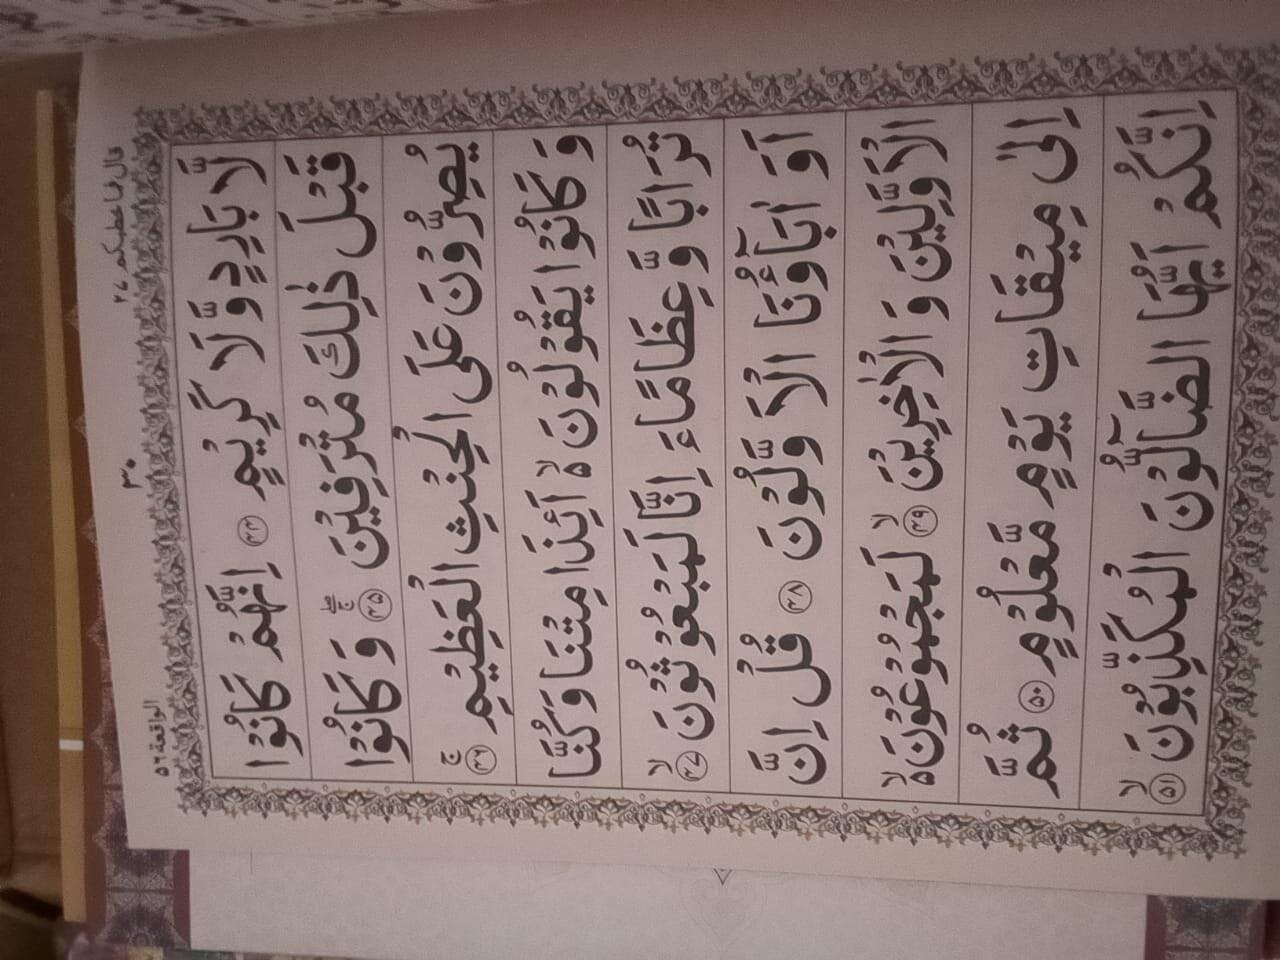 قال فما خطبكم ٢٧
٣٠
الواقعة ٥٦
لَّا بَارِدٍ وَّلَا كَرِيْمٍ ﴿۴۴﴾ اِنَّهُمْ كَانُوْا
قَبْلَ ذٰلِكَ مُتْرَفِيْنَ ﴿۴۵﴾ وَكَانُوْا
يُصِرُّوْنَ عَلَى الْحِنْثِ الْعَظِيْمِ ﴿۴۶﴾ۚ
وَكَانُوْا يَقُوْلُوْنَ ۙ۵ اَئِذَا مِتْنَا وَكُنَّا
تُرَابًا وَّعِظَامًا ءَاِنَّا لَمَبْعُوْثُوْنَ ﴿۴۷﴾ۙ
اَوَ اٰبَآؤُنَا الْاَوَّلُوْنَ ﴿۴۸﴾ قُلْ اِنَّ
الْاَوَّلِيْنَ وَ الْاٰخِرِيْنَ ﴿۴۹﴾ۙ لَمَجْمُوْعُوْنَ ۙ۵
اِلٰى مِيْقَاتِ يَوْمٍ مَّعْلُوْمٍ ﴿۵۰﴾ ثُمَّ
اِنَّكُمْ اَيُّهَا الضَّآلُّوْنَ الْمُكَذِّبُوْنَ ﴿۵۱﴾ۙ